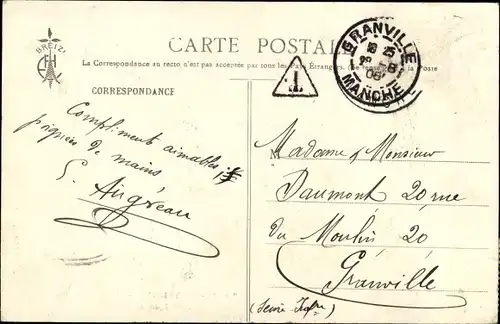 BREIZ
CARTE POSTALE
La Correspondance au recto n'est pas acceptée par tous les Pays Étrangers. (Se renseigner à la Poste
CORRESPONDANCE
T
GRANVILLE
18 25
08
MANCHE
Compliment aimables et
poignées de mains
Madame & Monsieur
Daumont 20, rue
du Moulin 20
Granville